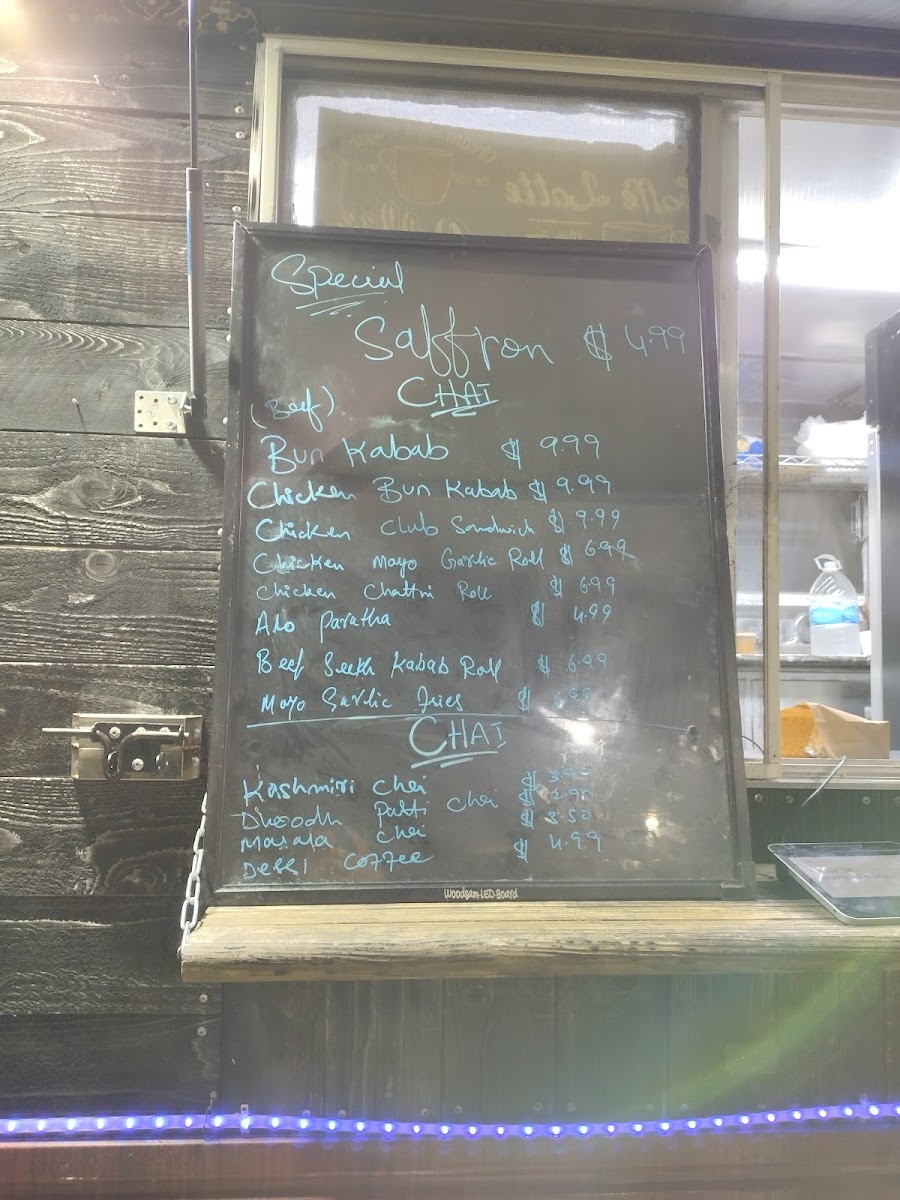 Caffè Latte
Special
Saffron $ 4.99
CHAI
(Beef)
Bun Kabab $ 9.99
Chicken Bun Kabab $ 9.99
Chicken Club Sandwich $ 9.99
Chicken Mayo Garlic Roll $ 6.99
Chicken Chattni Roll $ 6.99
Alo Paratha $ 4.99
Beef Seekh Kabab Roll $ 6.99
Mayo Garlic Fries $ 6.99
CHAI
Kashmiri Chai $ 3.99
Dhoodh Patti Chai $ 2.99
Masala Chai $ 3.50
DESSI COFFEE $ 4.99
Woodsam-LED-Board